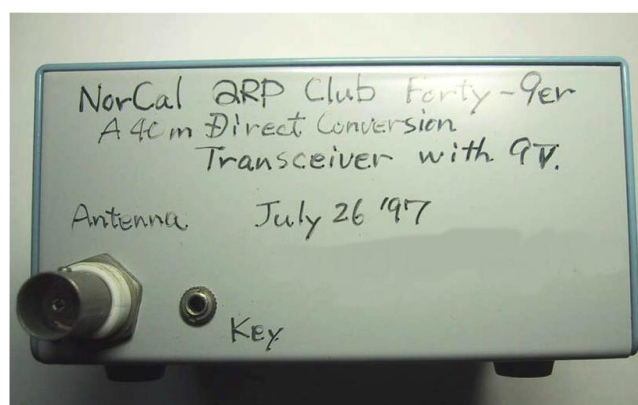 NorCal QRP Club Forty-9er
A 40m Direct Conversion
Transceiver with 9V.
Antenna July 26 '97
Key